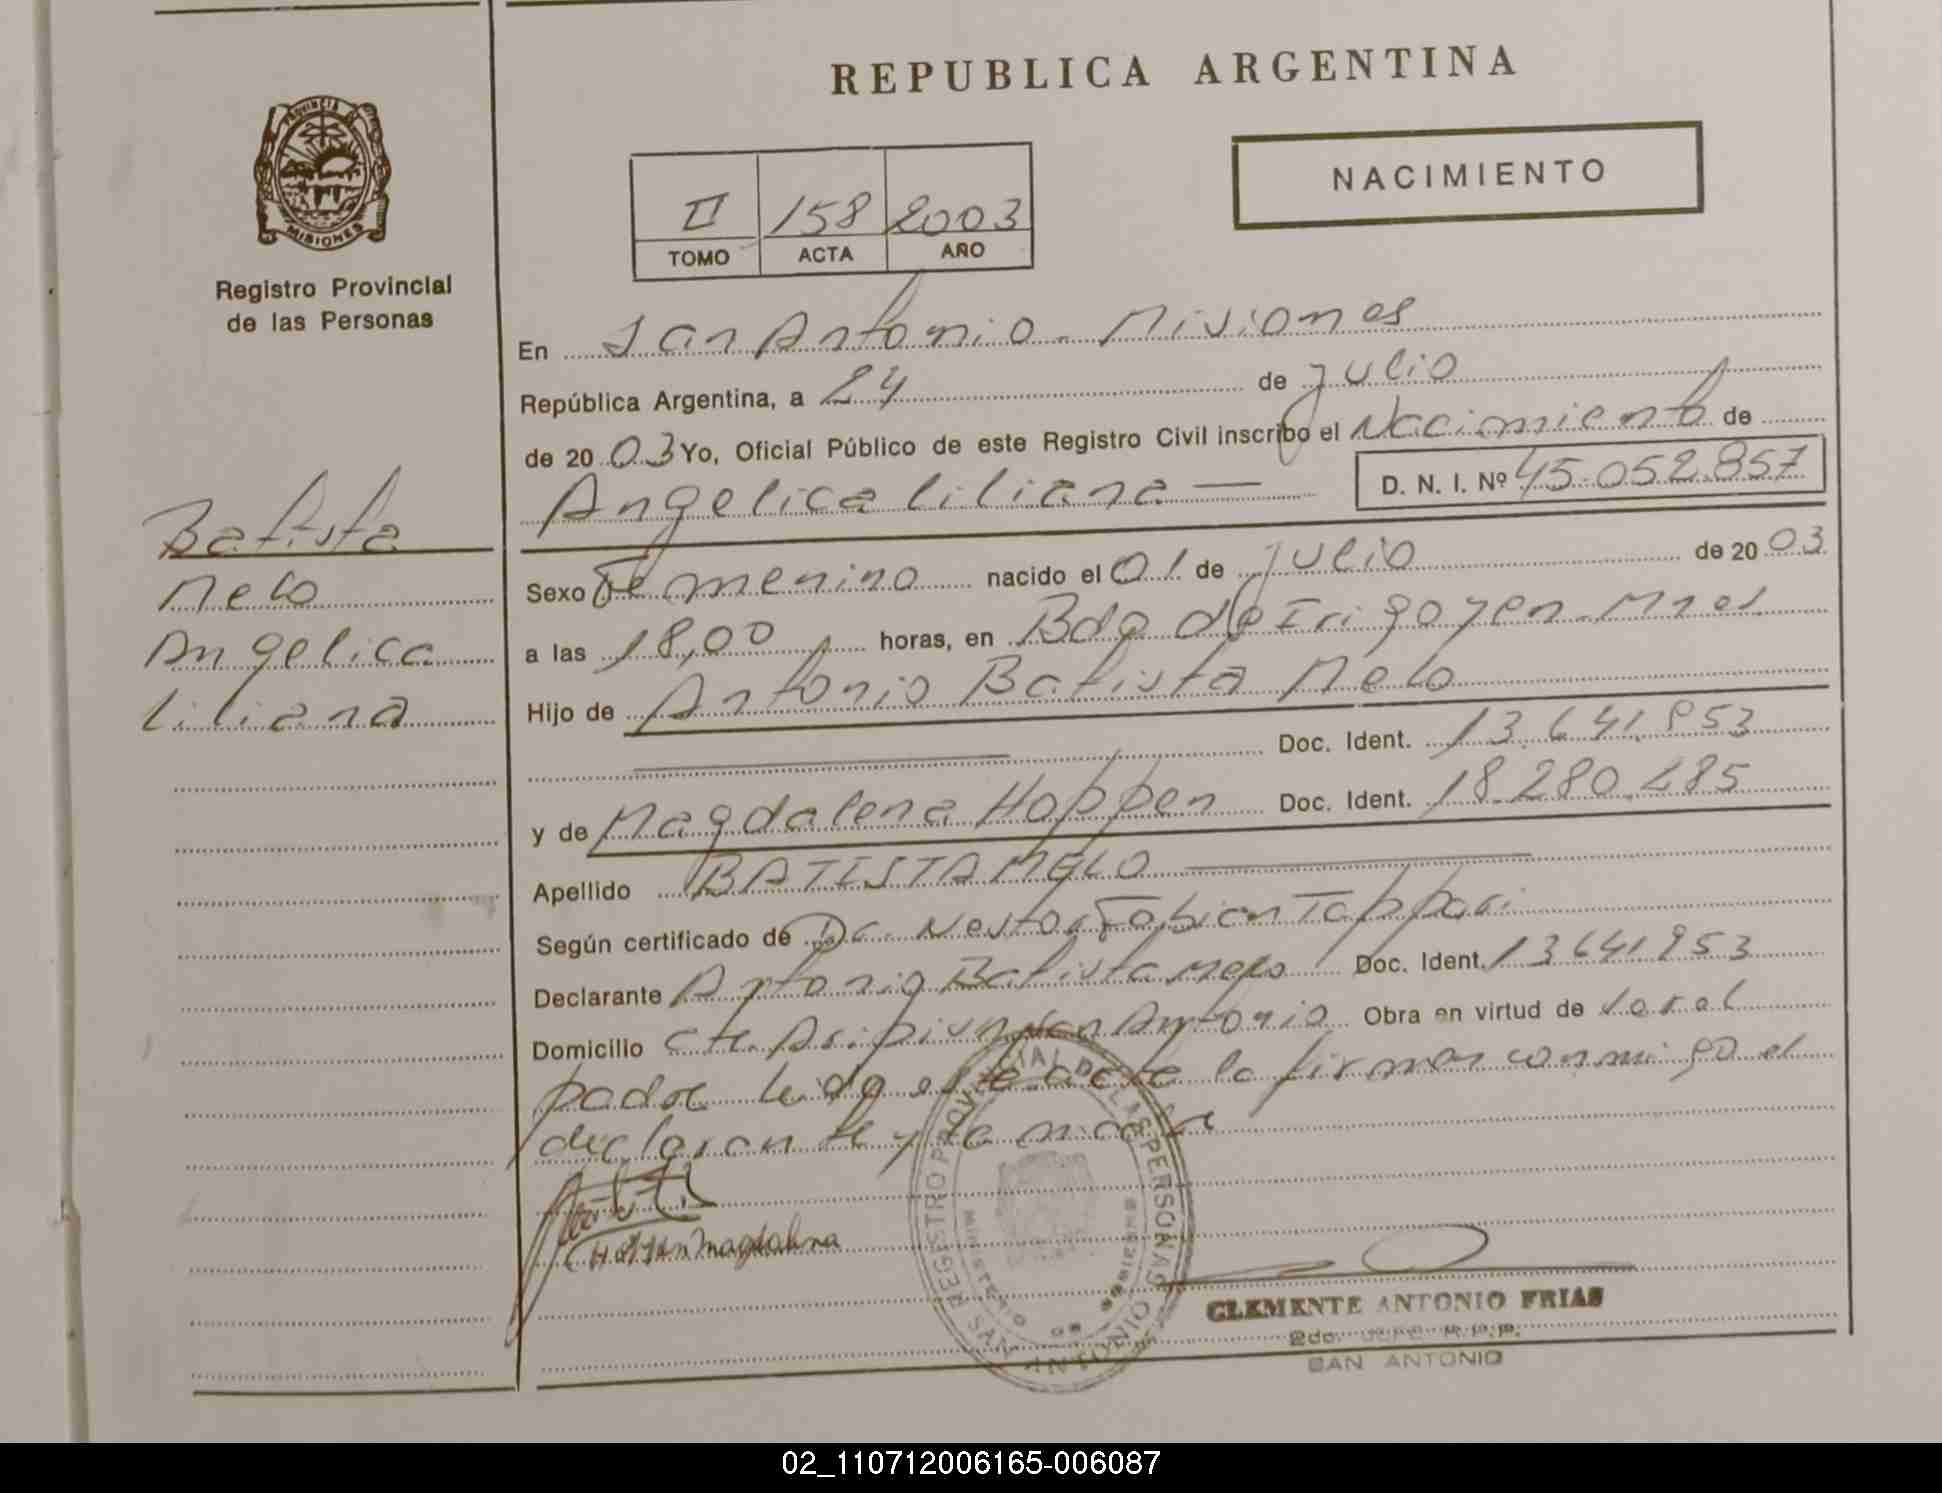 REPUBLICA ARGENTINA
PROVINCIA DE
MISIONES
Registro Provincial
de las Personas
NACIMIENTO
II 158 2003
TOMO ACTA AÑO
En San Antonio - Misiones
República Argentina, a 24 de julio
de 20 03 Yo, Oficial Público de este Registro Civil inscribo el Nacimiento de
Angelica Liliana — D. N. I. Nº 45.052.857
Batista
Melo
Angelica
Liliana
Sexo Femenino nacido el 01 de julio de 20 03
a las 18,00 horas, en Bdo de Irigoyen - Mnes
Hijo de Antonio Batista Melo
Doc. Ident. 13.641.853
y de Magdalena Hoppen Doc. Ident. 18.280.485
Apellido BATISTA MELO
Según certificado de Dr. Nestor Fabian Tappari
Declarante Antonio Batista Melo Doc. Ident. 13641853
Domicilio San Antonio Obra en virtud de
padre leida el acta la firman conmigo el
declarante y la madre
Hoppen Magdalena
REGISTRO PROVINCIAL DE LAS PERSONAS
MINISTERIO DE GOBIERNO
SAN ANTONIO
CLEMENTE ANTONIO FRIAS
2do. R.P.P.
SAN ANTONIO
02_110712006165-006087